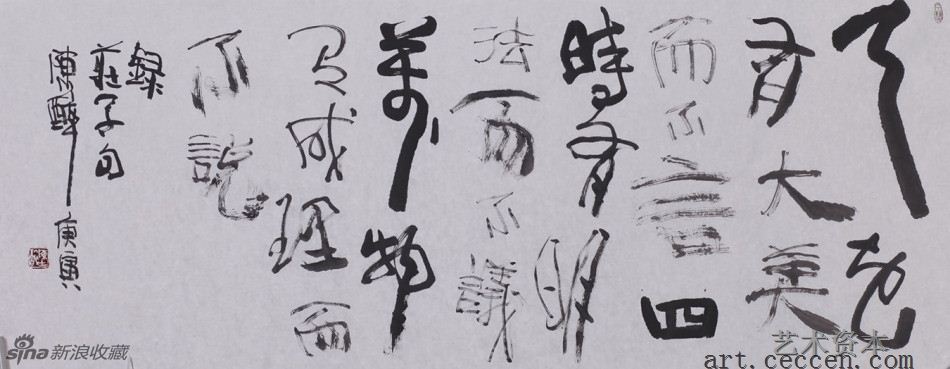 天地
有大美
而不言四
時有明
法而不議
萬物
有成理而
不説
錄
莊子句
陳醉 庚寅
sina 新浪收藏
艺术资本
art.ceccen.com